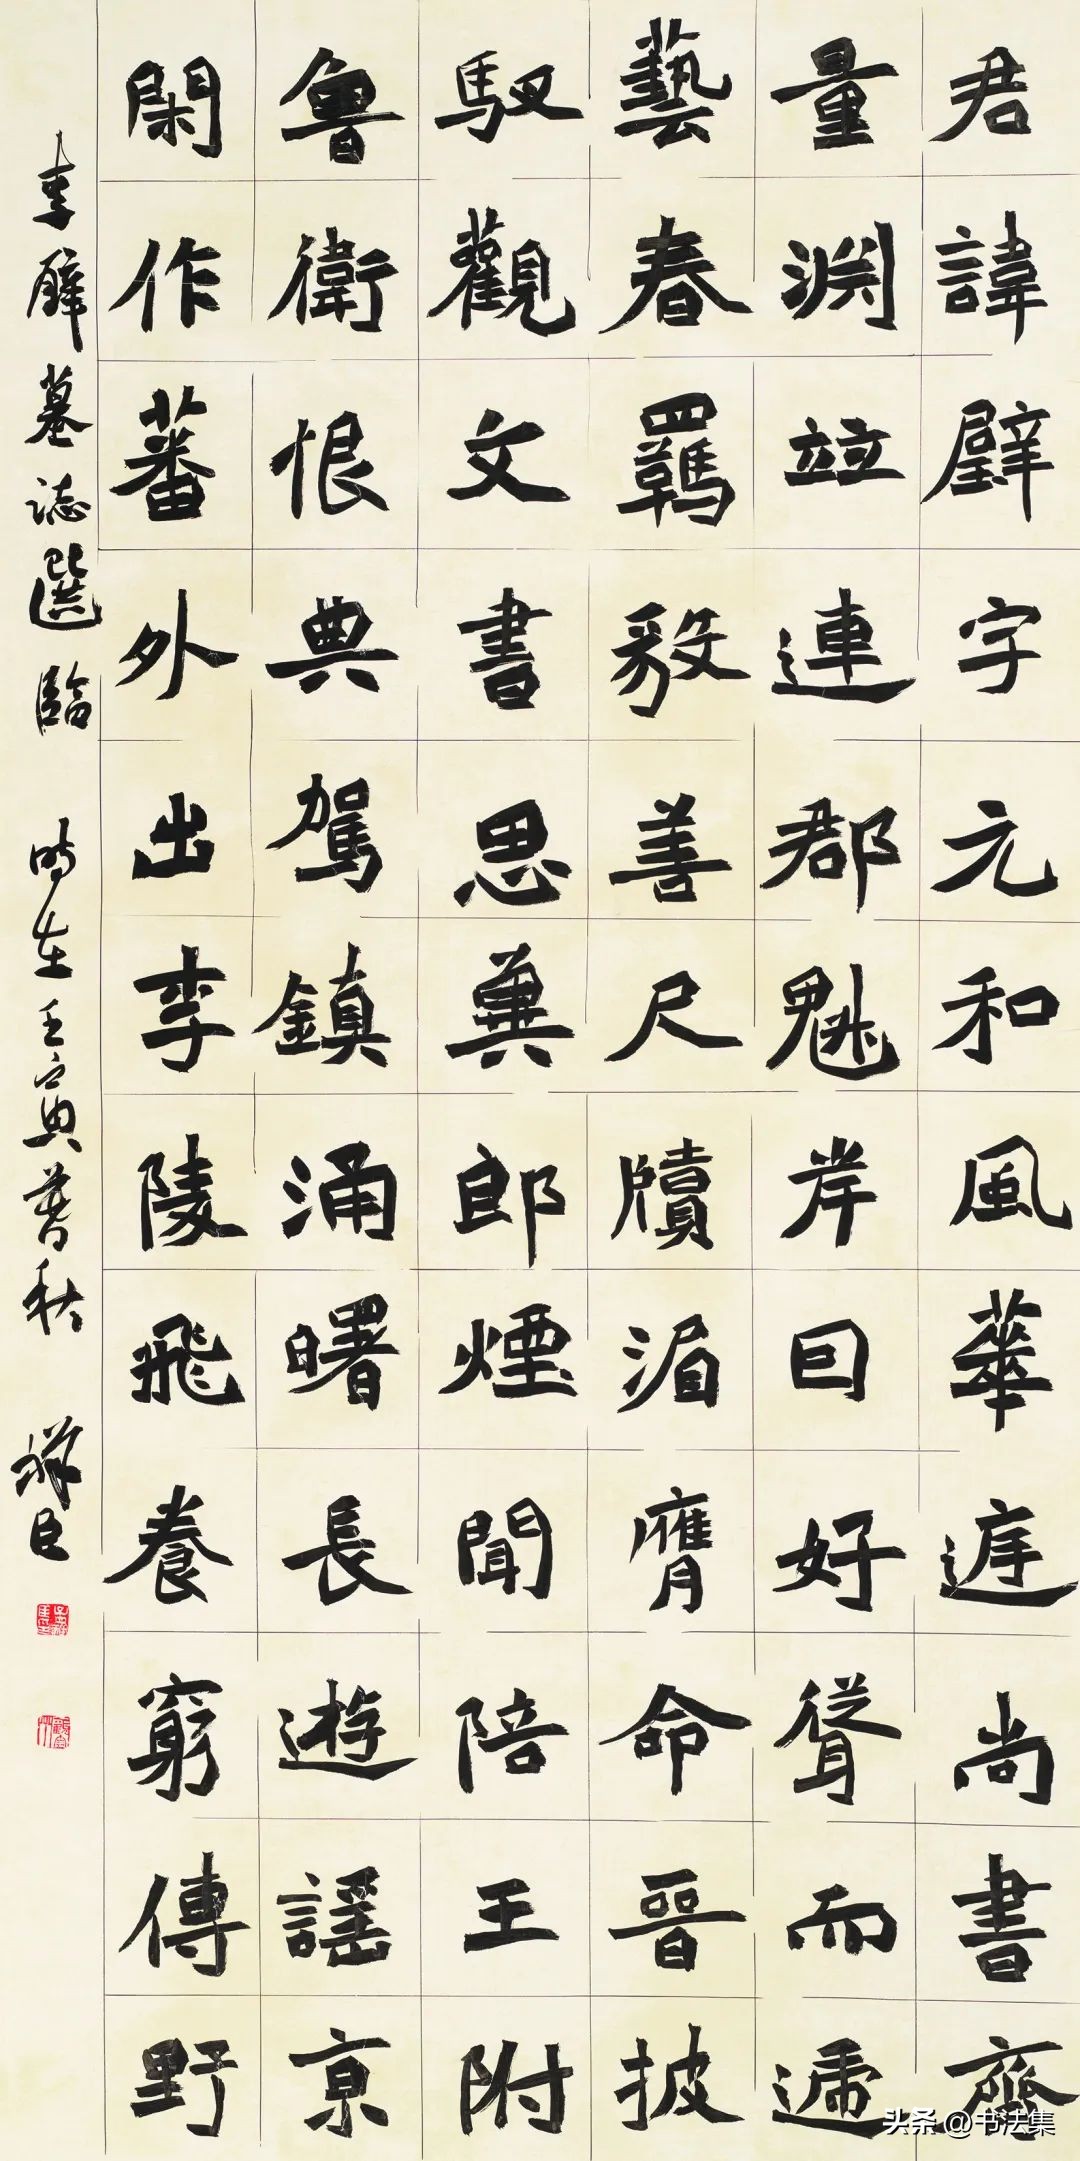 君諱璧字元和風華庭尚書齊
量淵竝連郡魁岸囙好聳而遞
藝春羈毅善尺牘湄膺命晉披
馭觀文書思冀郎煙聞陪王附
魯衛恨典駕鎮涌曙長遊謡亰
閑作蕃外出李陵飛養窮傳野
李璧墓誌選臨 時在壬寅暮秋 祥臣
头条 @书法集